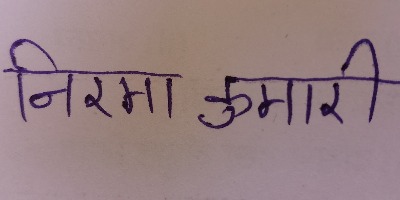 निरमा कुमारी